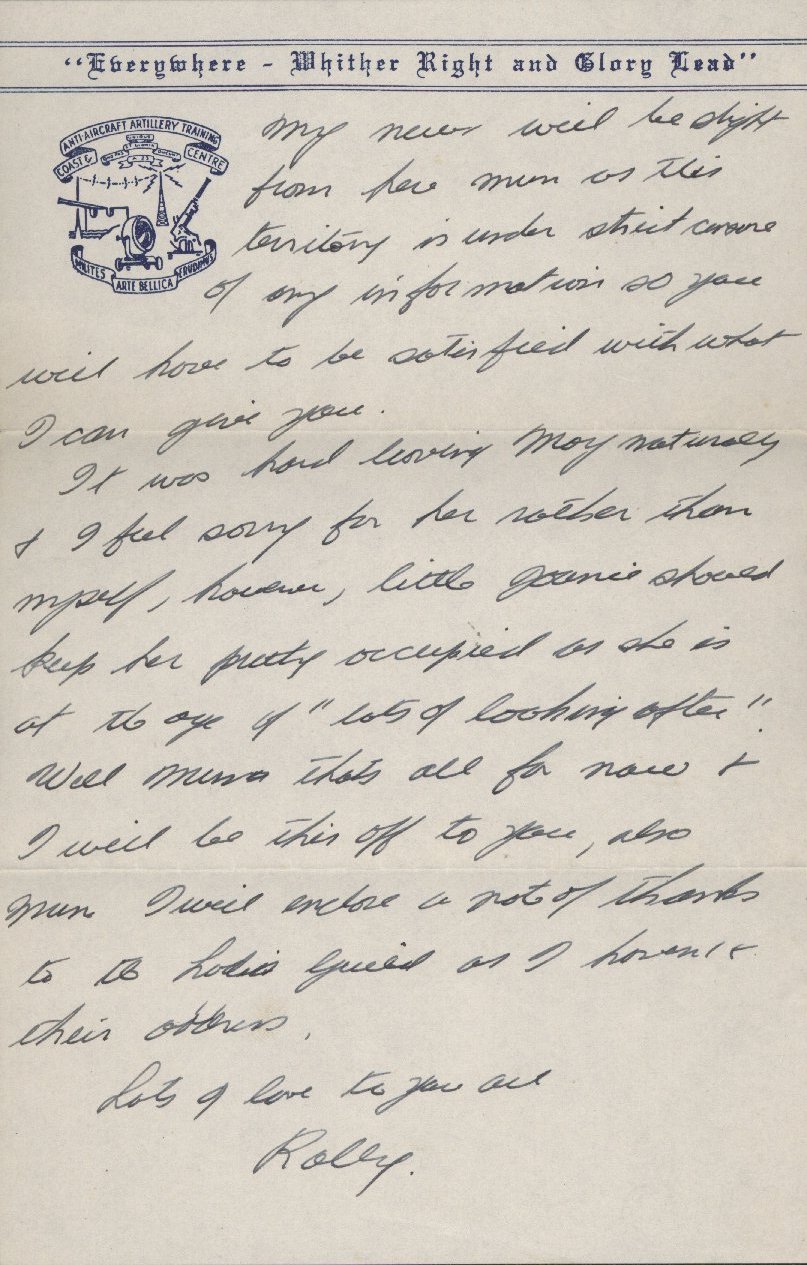 "Everywhere - Whither Right and Glory Lead"
ANTI-AIRCRAFT ARTILLERY TRAINING
COAST & CENTRE
MILITES ARTE BELLICA ERUDIMUS
My news will be slight
from here mum as this
territory is under strict
of any information so you
will have to be satisfied with what
I can give you.
It was hard leaving May naturally
& I feel sorry for her rather than
myself, however, little Joanie should
keep her pretty occupied as she is
at the age of "lots of looking after".
Well Mum thats all for now &
I will be this off to you, also
Mum I will enclose a note of thanks
to the Ladies Guild as I haven't
their address.
Lots of love to you all
Rolly.